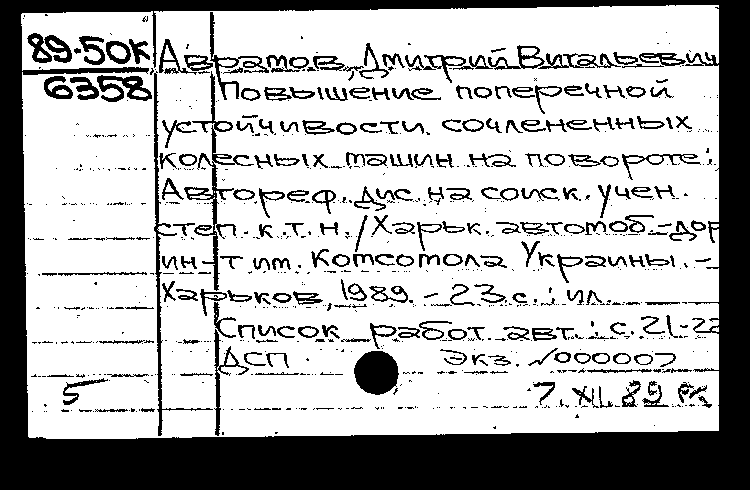 89-50К Авратов, Дмитрий Витальевич
6358 Повышение поперечной
устойчивости сочлененных
колесных машин на повороте:
Автореф. дис. на соиск. учен.
степ. к.т.н. / Харьк. автомоб.-дор
ин-т им. Комсомола Украины. -
Харьков, 1989. - 23 с.: ил.
Список работ авт.: с. 21-22
ДСП Экз. №000007
5 7. XII. 89